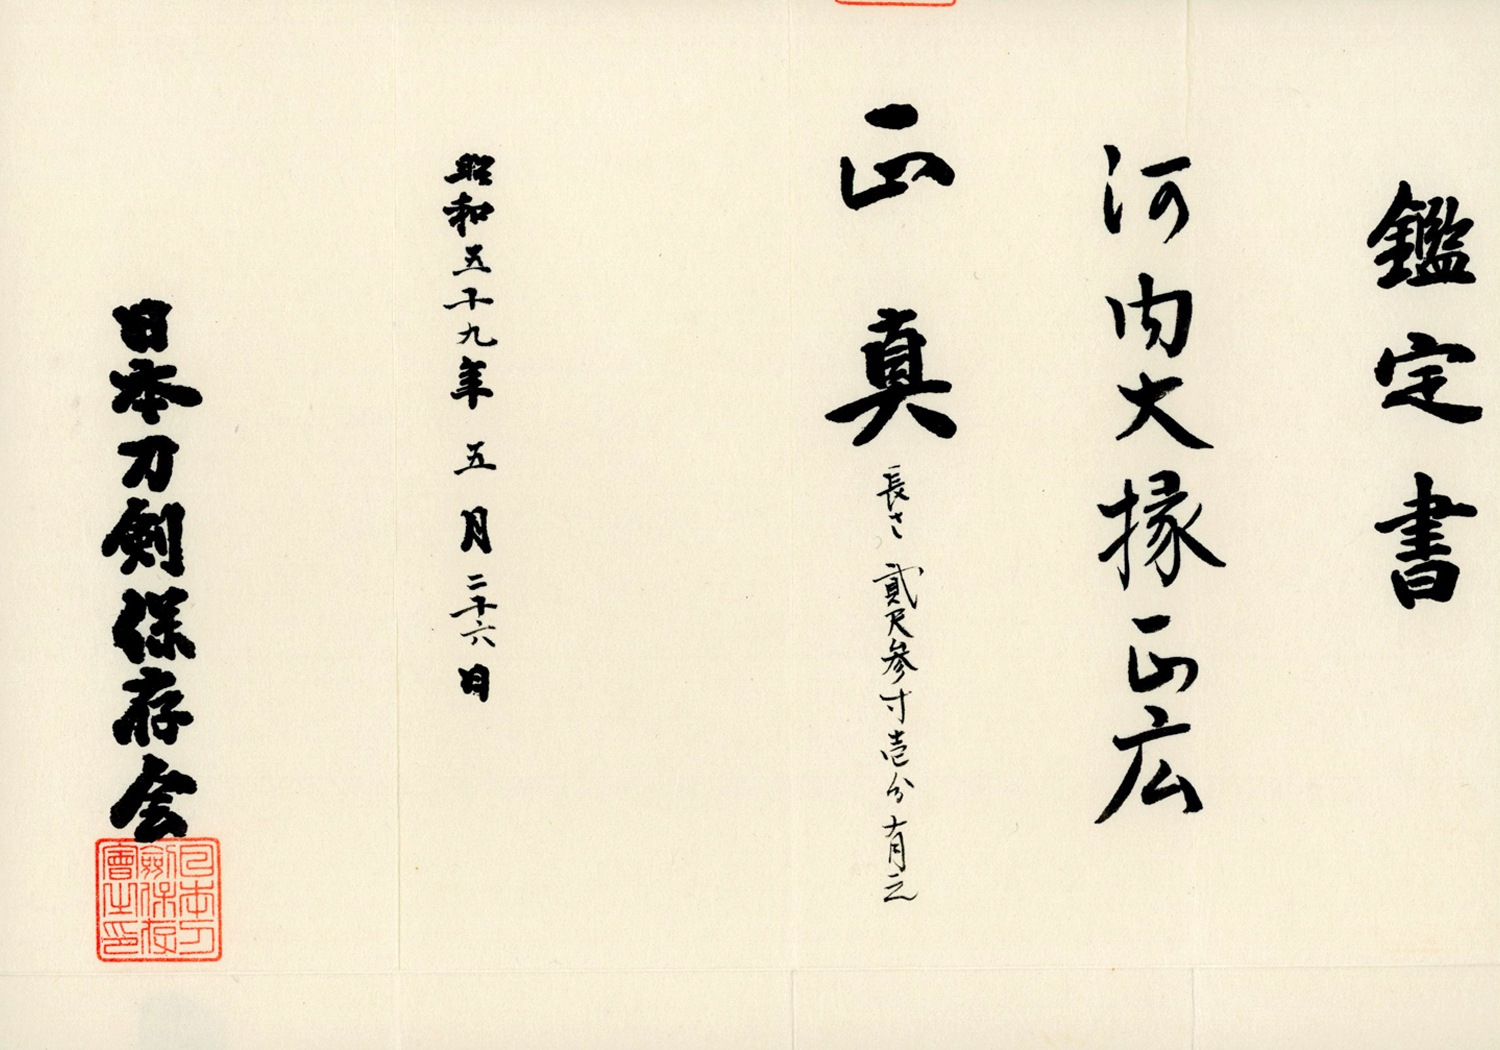 鑑定書
河内大掾正広
正真
長さ 貳尺参寸壱分有之
昭和五十九年 五月二十六日
日本刀剣保存会
日本刀
劔保存
會之印